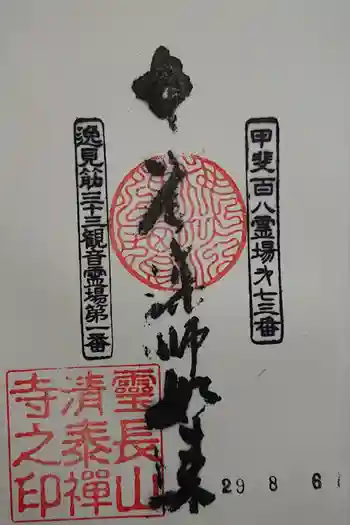 甲斐百八霊場第七三番
薬師如来
逸見筋三十三観音霊場第一番
靈長山
清泰禪
寺之印
29 8 6